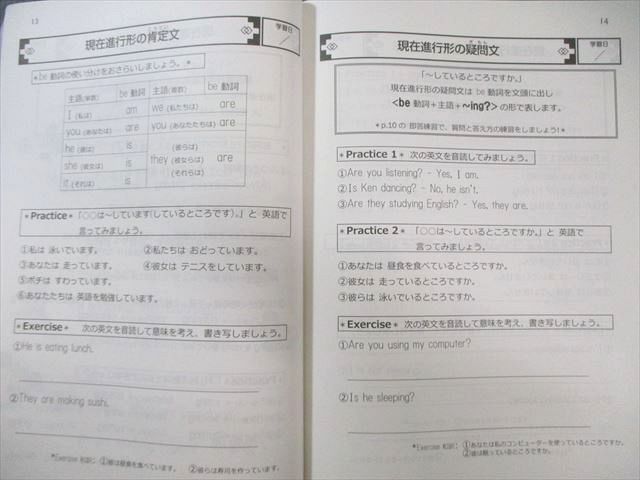 13
現在進行形の肯定文
学習日
＊be 動詞の使い分けをおさらいしましょう。＊
主語(単数) be 動詞 主語(複数) be 動詞
I (私は) am we (私たちは) are
you (あなたは) are you (あなたたちは) are
he (彼は) is
she (彼女は) is
it (それは) is
they (彼らは) (彼女らは) (それらは) are
＊Practice＊ 「○○は～しています(しているところです)。」と 英語で
言ってみましょう。
①私は 泳いでいます。 ②私たちは おどっています。
③あなたは 走っています。 ④彼女は テニスをしています。
⑤ポチは すわっています。
⑥あなたたちは 英語を勉強しています。
＊Exercise＊ 次の英文を音読して意味を考え、書き写しましょう。
①He is eating lunch.
②They are making sushi.
＊Exercise 和訳： ①彼は昼食を食べています。 ②彼らは寿司を作っています。
14
現在進行形の疑問文
ぎもん
学習日
「～しているところですか。」
現在進行形の疑問文は be 動詞を文頭に出し
<be 動詞+主語+~ing?> の形で表します。
＊p.10 の 即答練習で、質問と答え方の練習をしましょう!＊
＊Practice 1＊ 次の英文を音読してみましょう。
①Are you listening? - Yes, I am.
②Is Ken dancing? - No, he isn't.
③Are they studying English? - Yes, they are.
＊Practice 2＊ 「○○は～しているところですか。」と 英語で
言ってみましょう。
①あなたは 昼食を食べているところですか。
②彼女は 走っているところですか。
③彼らは 泳いでいるところですか。
＊Exercise＊ 次の英文を音読して意味を考え、書き写しましょう。
①Are you using my computer?
②Is he sleeping?
＊Exercise 和訳： ①あなたは私のコンピューターを使っているところですか。
②彼は眠っているところですか。